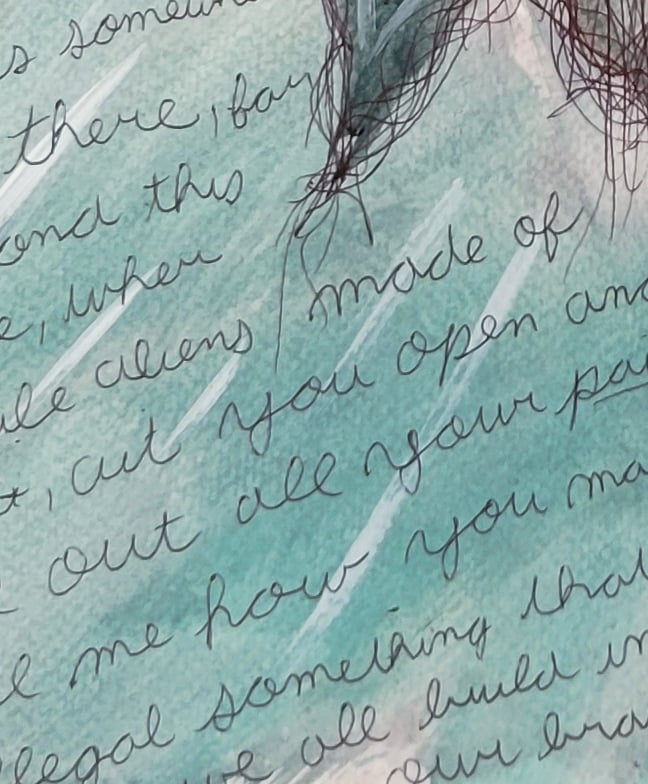 s somethin
there, far
ond this
e, when
ile aliens made of
t, cut you open and
out all your pai
l me how you ma
llegal something that
we all build in
our bra